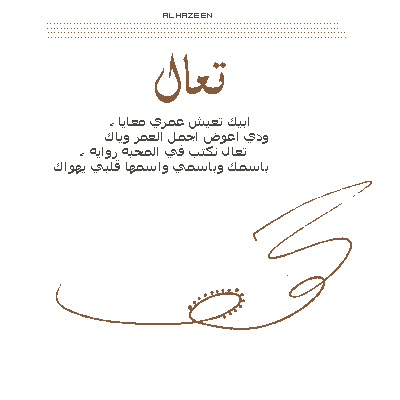 ALHAZEEN
تعال
ابيك تعيش عمري معايا ..
ودي اعوض اجمل العمر وياك
تعال نكتب في المحبه روايه ..
باسمك وباسمي واسمها قلبي يهواك